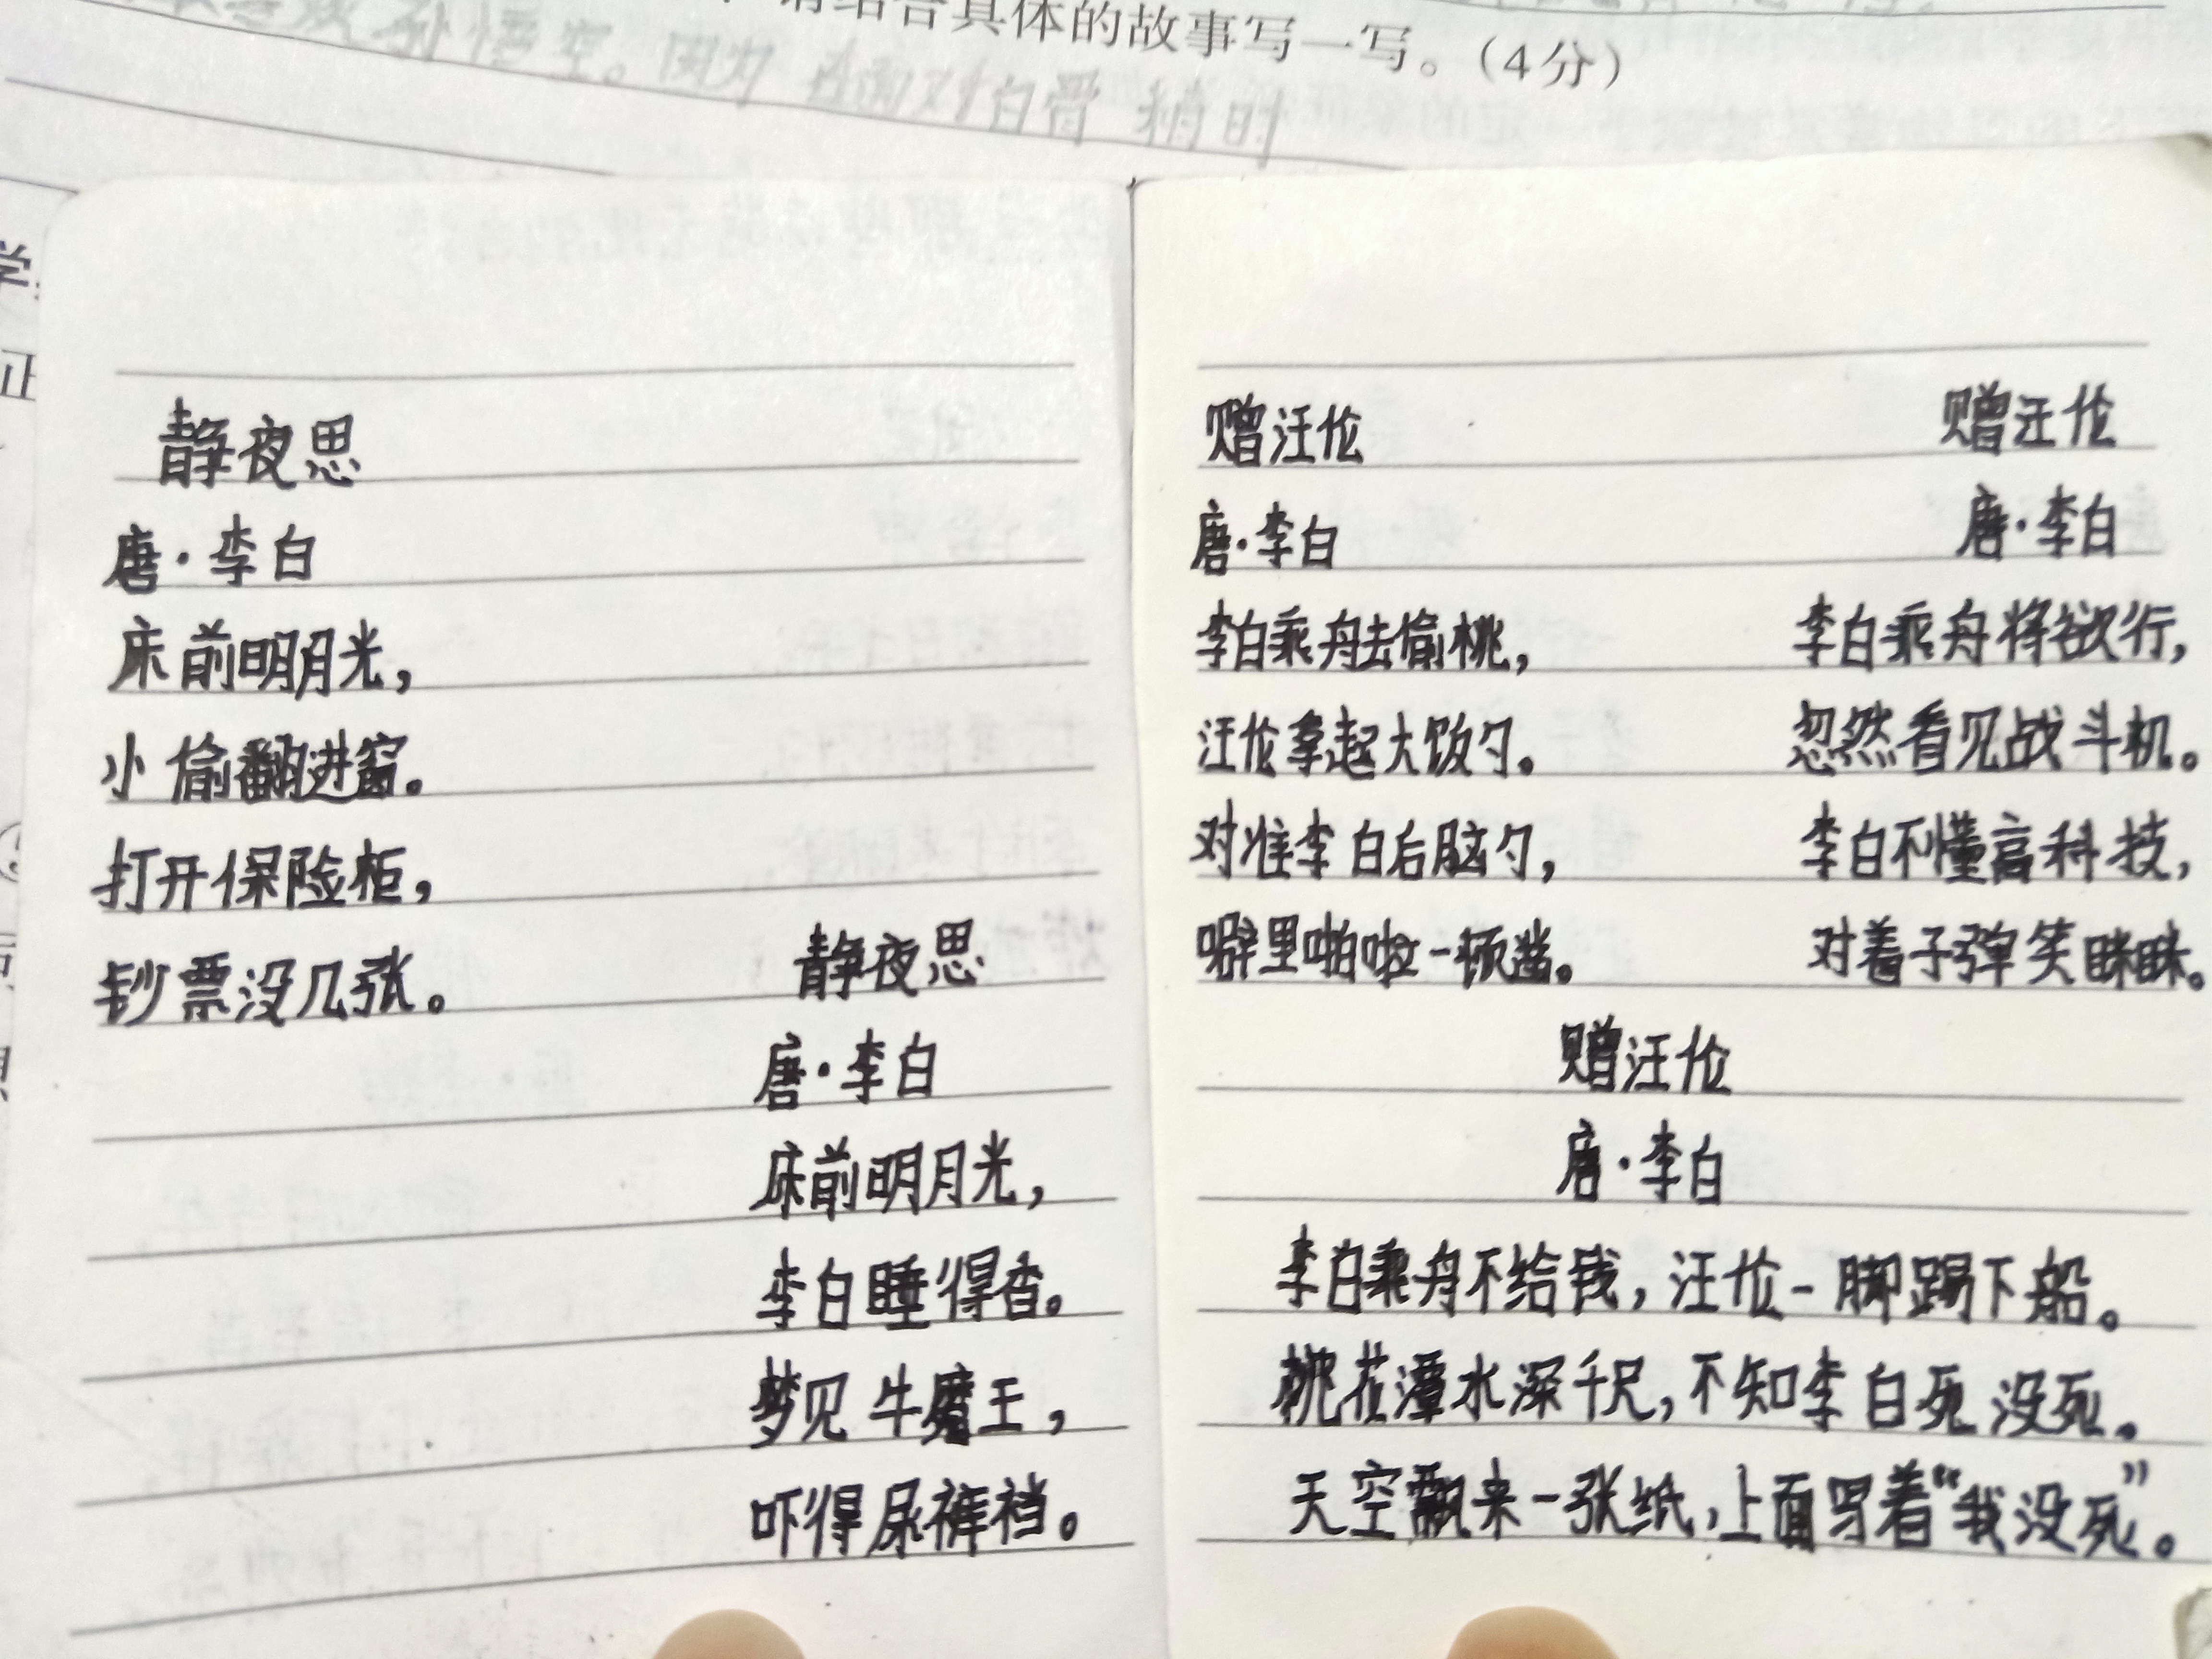 请结合具体的故事写一写。(4分)
孙悟空。因为在面对白骨精时
静夜思
唐·李白
床前明月光，
小偷翻进窗。
打开保险柜，
钞票没几张。
静夜思
唐·李白
床前明月光，
李白睡得香。
梦见牛魔王，
吓得尿裤裆。
赠汪伦
唐·李白
李白乘舟去偷桃，
汪伦拿起大饭勺。
对准李白后脑勺，
噼里啪啦一顿凿。
赠汪伦
唐·李白
李白乘舟将欲行，
忽然看见战斗机。
李白不懂高科技，
对着子弹笑眯眯。
赠汪伦
唐·李白
李白乘舟不给钱，汪伦一脚踢下船。
桃花潭水深千尺，不知李白死没死。
天空飘来一张纸，上面写着“我没死”。